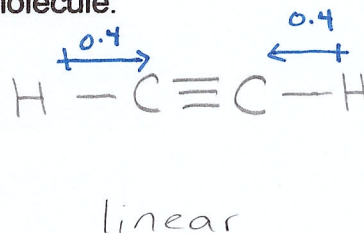 molecule.
0.4 0.4
H — C ≡ C — H
linear